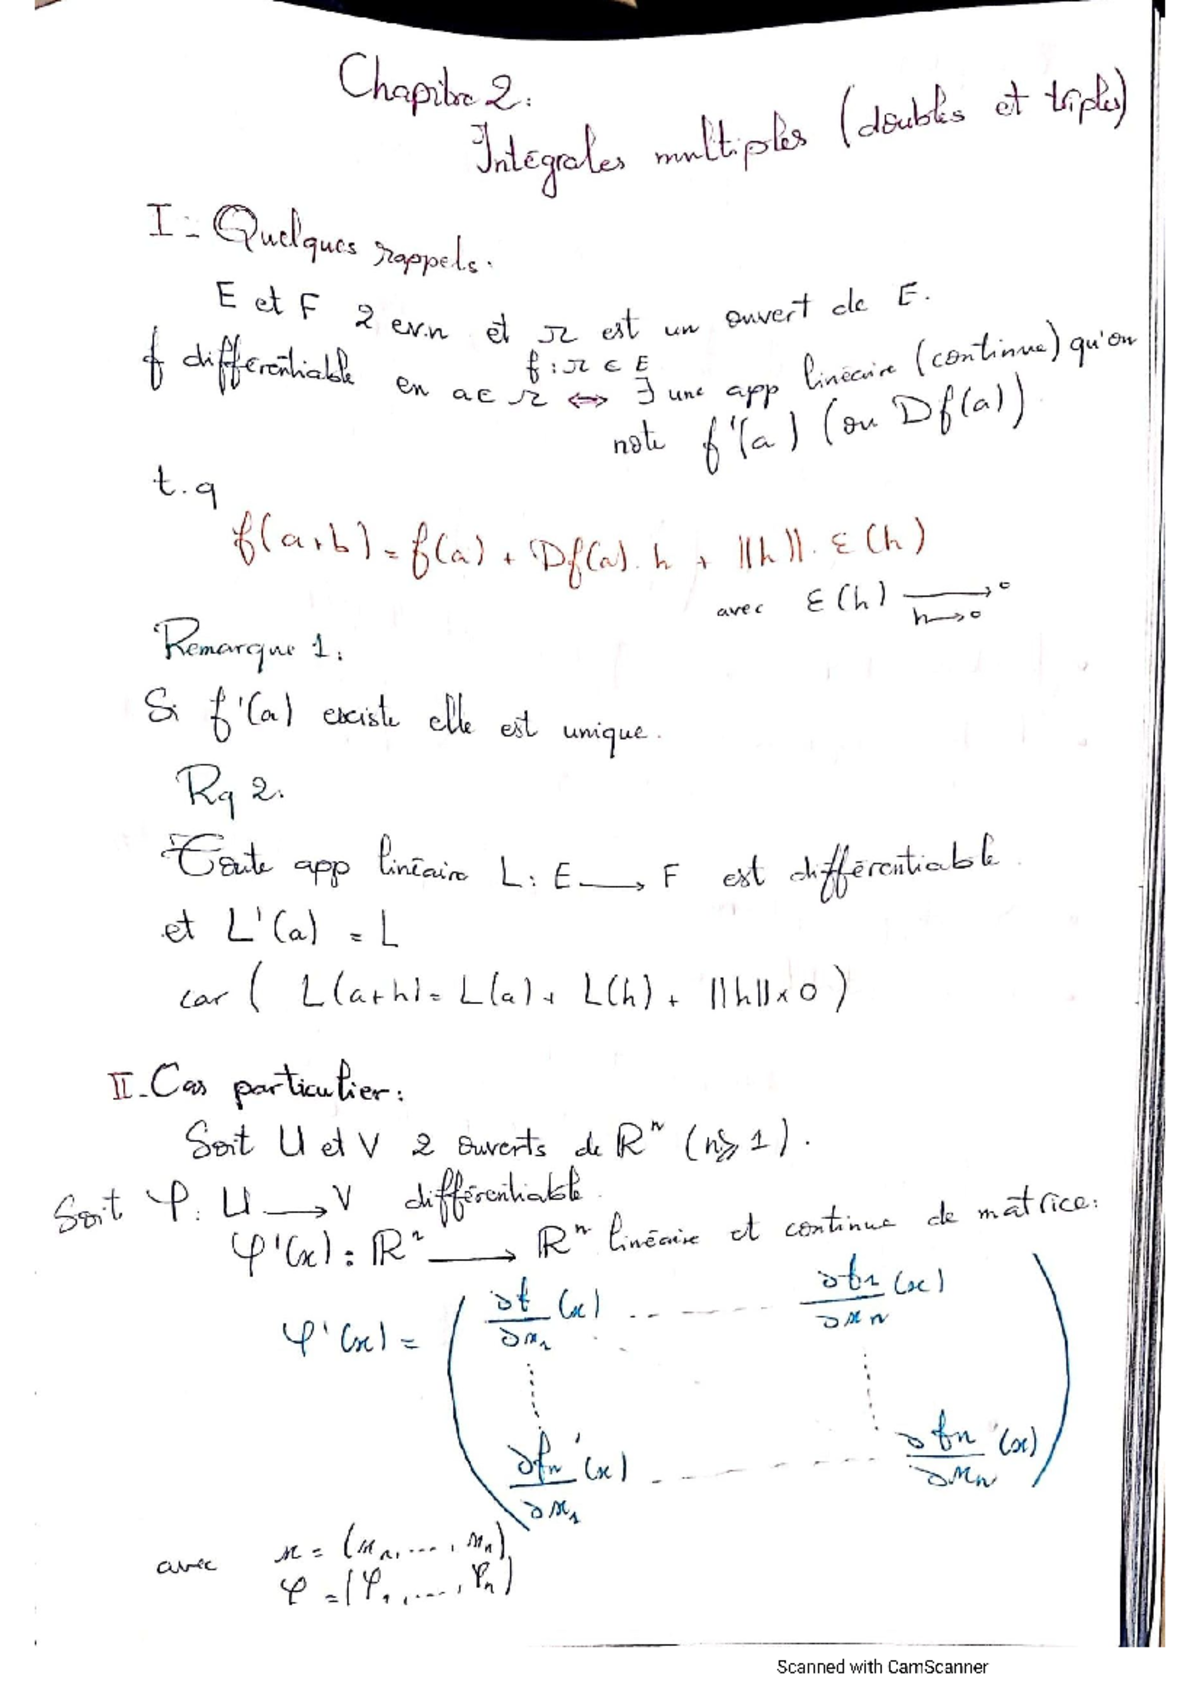 Chapitre 2:
Intégrales multiples (doubles et triples)
I - Quelques rappels.
E et F 2 evn et Ω est un ouvert de E.
f : Ω ⊂ E
f différentiable en a ∈ Ω ⟺ ∃ une app linéaire (continue) qu'on
note f'(a) (ou Df(a))
t.q
f(a+b) = f(a) + Df(a).h + ||h||.ε(h)
avec ε(h) → 0
h→0
Remarque 1:
Si f'(a) existe elle est unique.
Rq 2.
Toute app linéaire L: E → F est différentiable.
et L'(a) = L
car ( L(a+h) = L(a) + L(h) + ||h|| x 0 )
II - Cas particulier:
Soit U et V 2 ouverts de ℝⁿ (n ⩾ 1).
Soit φ: U → V différentiable.
φ'(x): ℝⁿ → ℝⁿ linéaire et continue de matrice:
φ'(x) = ( ∂f/∂x₁ (x) ----- ∂f₁/∂xₙ (x)
⋮ ⋮
∂fₙ/∂x₁ (x) ----- ∂fₙ/∂xₙ (x) )
avec x = (x₁, ..., xₙ)
φ = (φ₁, ..., φₙ)
Scanned with CamScanner